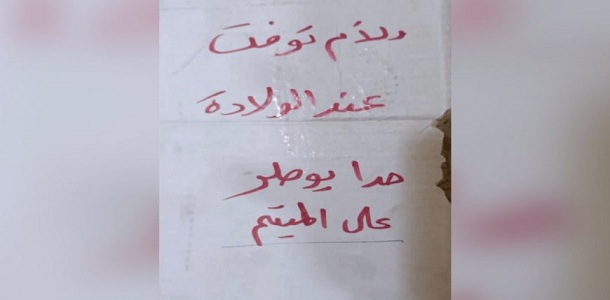 دلأم توفت
عند الولادة
حدا يوصلو
على الميتم